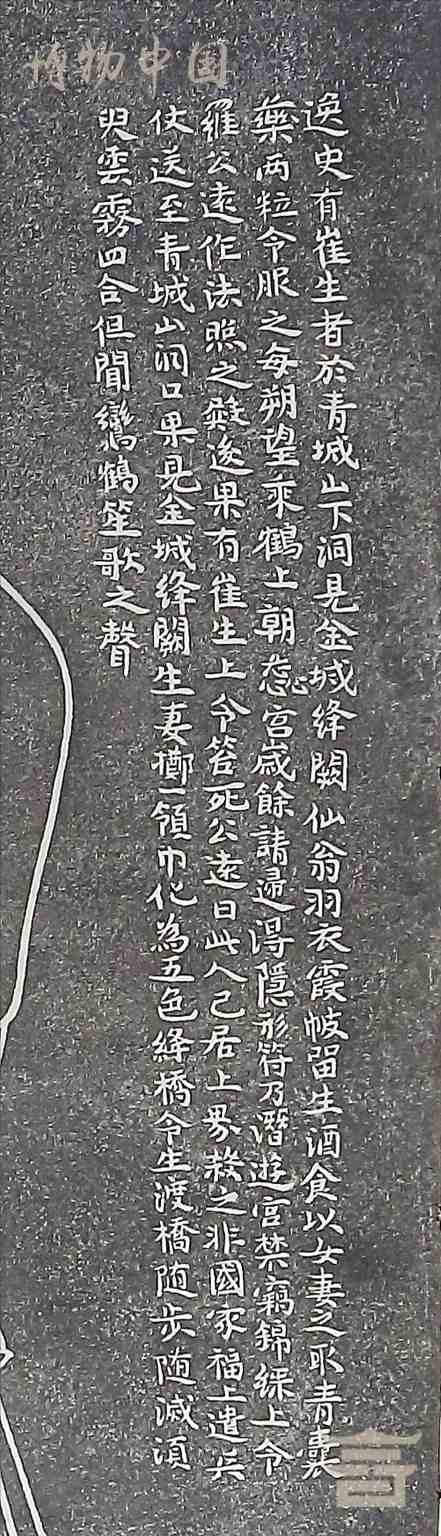 博物中国
逸史有崔生者於青城山下洞見金城絳闕仙翁羽衣霞帔留生酒食以女妻之取青囊
藥两粒令服之每朔望乘鶴上朝蕊宫歲餘請還得隱形符乃潛遊宫禁竊錦綵上令
羅公遠作法照之殿後果有崔生上令笞死公遠曰此人已居上界殺之非國家福上遣兵
仗送至青城山洞口果見金城絳闕生妻擲一領巾化為五色絳橋令生渡橋随步随滅須
臾雲霧四合但聞鸞鶴笙歌之聲